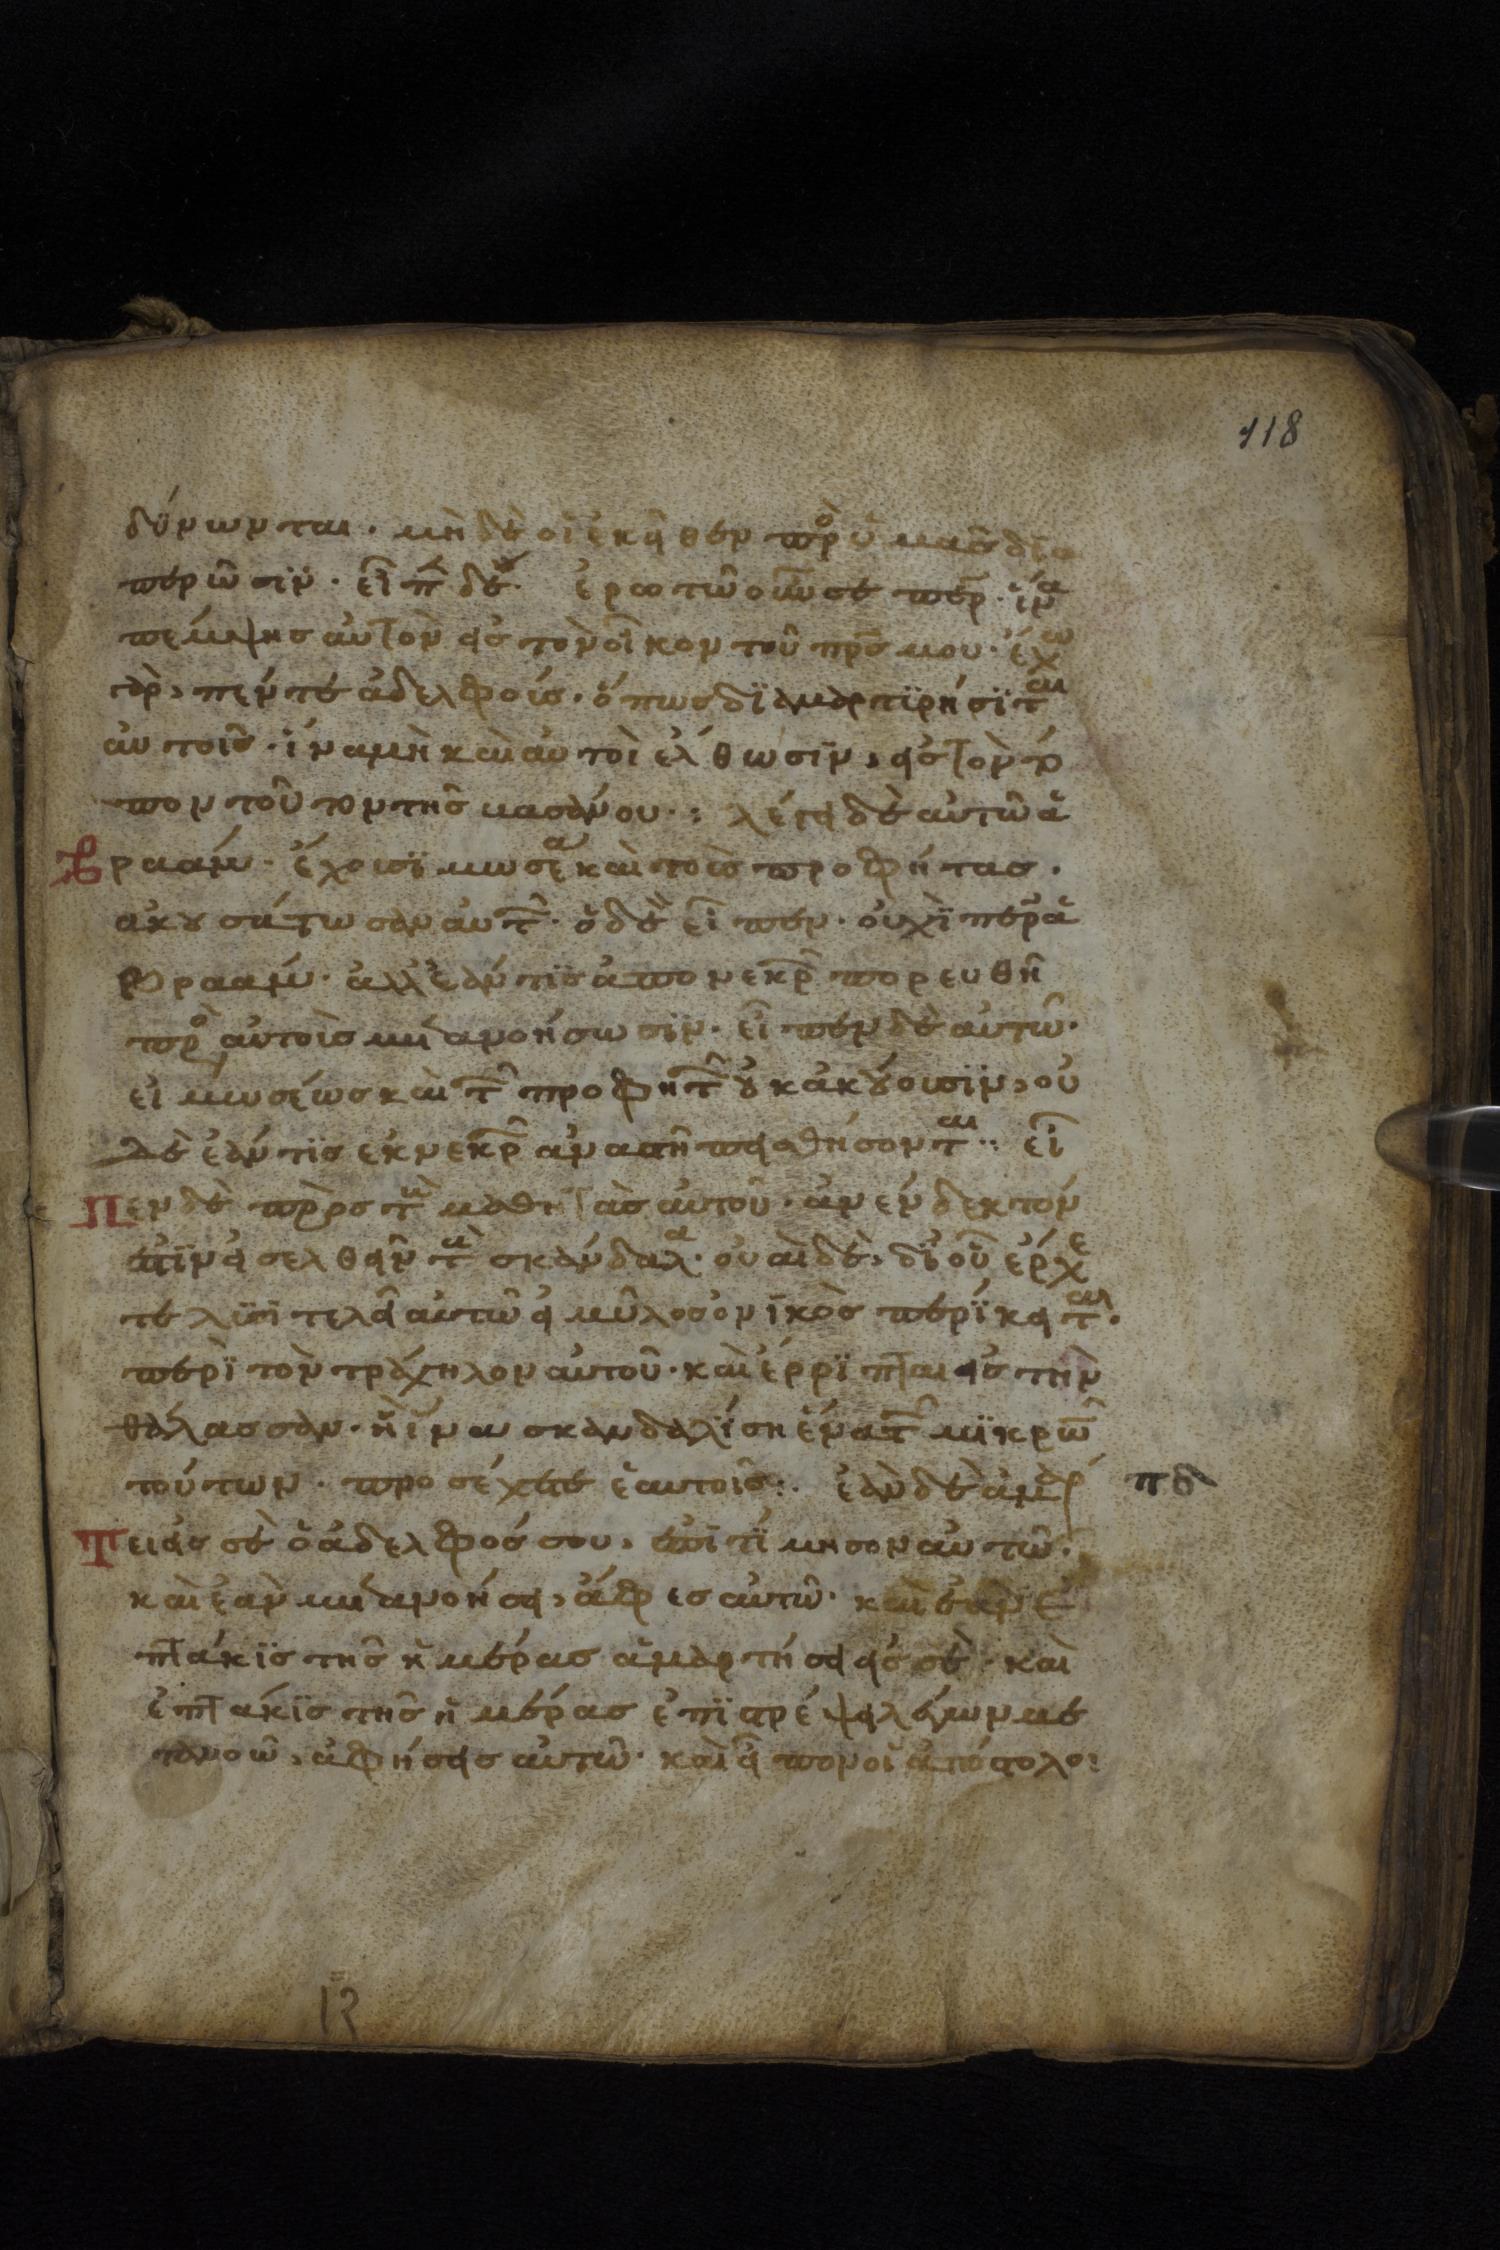 118
δύνωνται · μὴ δὲ οἱ ἐκεῖθεν πρὸ ὑμᾶς δια
περῶσϊν · εἶπ δέ · ἐρωτῶ οὖν σε περ · ἵνα
πέμψης αὐτὸν εἰς τὸν οἶκον τοῦ πρς μου · ἔχω
γὰρ, πέντε ἀδελφοίς · ὅπως δϊαμαρτϊρήσϊται
αὐτοῖς · ἵνα μὴ καὶ αὐτοὶ ἔλθωσϊν, εἰς τὸν τό
πον τοῦτον τῆς βασάνου · : λέγει δὲ αὐτῶ ἁ
βραάμ · ἔχοισϊ μωσέα καὶ τοὶς προφήτας ·
ἀκȣσάτωσαν αὐτ · ὁ δὲ εἶπεν · οὐχὶ περ ἁ
βραάμ · ἀλλ' ἐάν τϊς ἀπο νεκρ πορευθῆ
πρὸ αὐτοὶς μετανοήσωσϊν · εἶπεν δὲ αὐτῶ ·
εἰ μωσέως καὶ τ προφητ ȣκ ἀκȣοισϊν, οὐ
δὲ ἐάν τϊς ἐκ νεκρ ἀναστῆ πεισθήσονται : εἶ
πεν δὲ πρὸς τ μαθητὰς αὐτοῦ · ἀνένδεκτόν
ἐστϊν εἰσελθεῖν τὰ σκάνδαλα · οὐαὶ δὲ, δι' οὗ ἔρχε
τε λϋσϊτελεῖ αὐτῶ εἰ μῦλος ὀνϊκὸς περίκειται ·
περὶ τὸν τράχηλον αὐτοῦ · καὶ ἔρρϊπται εἰς τὴν
θάλασσαν · ἢ ἵνα σκανδαλίση ἕνα τ μϊκρῶ
τούτων · προσέχετε ἑαυτοῖς : · ἐὰν δὲ ἁμάρ
πδ
τει εἰς σὲ ὁ ἀδελφός σου, ἐπϊτίμησον αὐτῶ ·
καὶ ἐὰν μετανοήσει, ἄφες αὐτῶ · καὶ ἐὰν ἑ
πτάκϊς τῆς ἡμέρας ἁμαρτήσει εἰς σὲ · καὶ
ἑπτάκϊς τῆς ἡμέρας ἐπϊστρέψει λέγων με
τανοῶ, ἀφήσεις αὐτῶ · καὶ εἶπον οἱ ἀπόστολοι